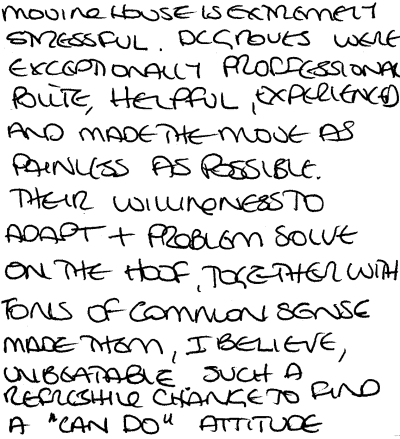 MOVING HOUSE IS EXTREMELY
STRESSFUL. DEGROVES WERE
EXCEPTIONALLY PROFESSIONAL
POLITE, HELPFUL, EXPERIENCED
AND MADE THE MOVE AS
PAINLESS AS POSSIBLE.
THEIR WILLINGNESS TO
ADAPT + PROBLEM SOLVE
ON THE HOOF, TOGETHER WITH
TONS OF COMMON SENSE
MADE THEM, I BELIEVE,
UNBEATABLE. SUCH A
REFRESHING CHANGE TO FIND
A "CAN DO" ATTITUDE